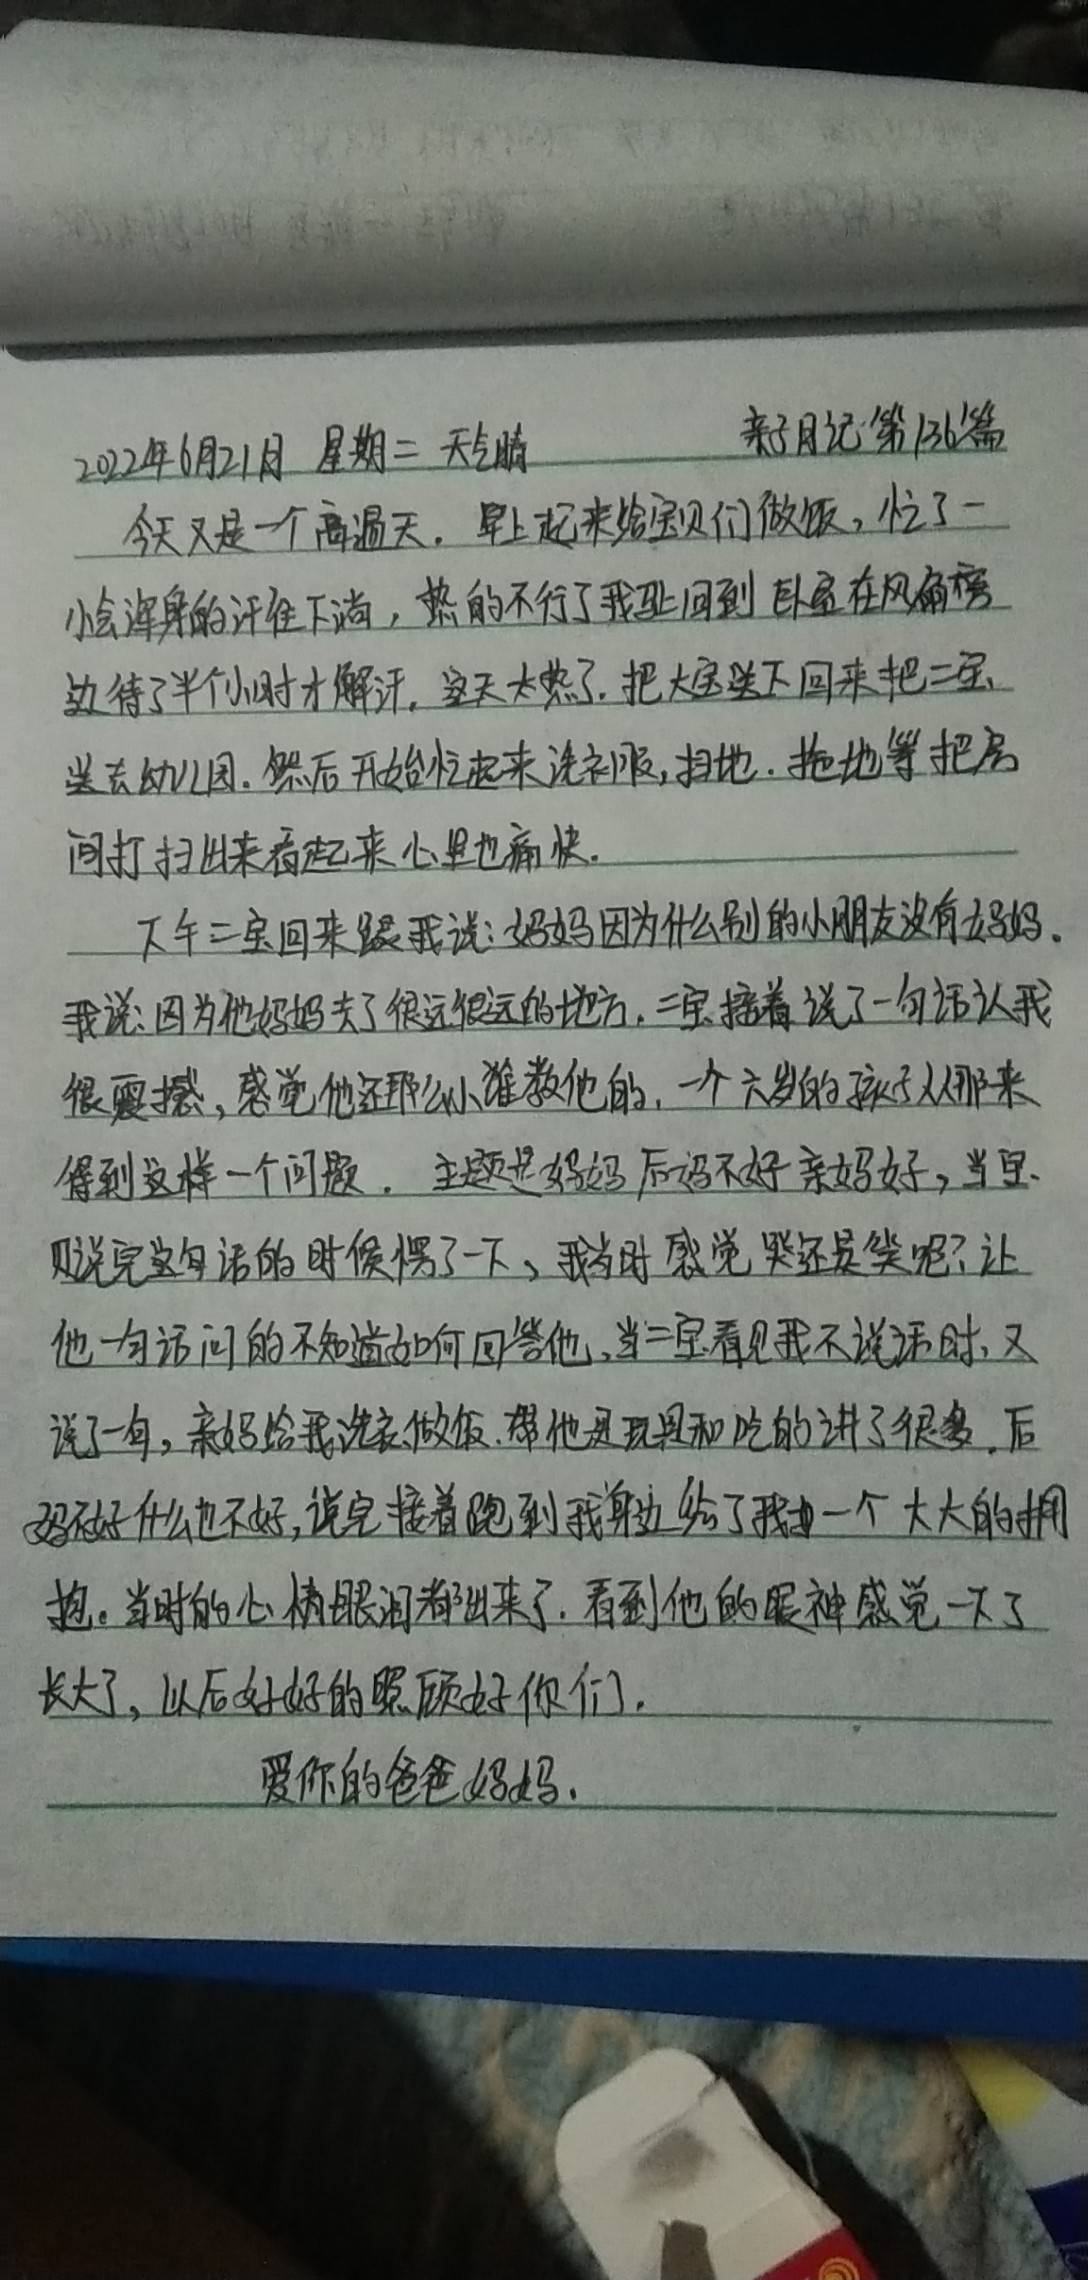 2022年6月21日 星期二 天气晴 亲子日记第136篇
今天又是一个高温天. 早上起来给宝贝们做饭,忙了一
小会浑身的汗往下淌,热的不行了我跑回到卧室在风扇旁
边待了半个小时才解汗. 这天太热了. 把大宝送下回来把二宝
送去幼儿园. 然后开始忙起来洗衣服,扫地. 拖地等把房
间打扫出来看起来心里也痛快.
下午二宝回来跟我说:妈妈因为什么别的小朋友没有妈妈.
我说:因为他妈妈去了很远很远的地方. 二宝接着说了一句话认我
很震撼,感觉他还那么小谁教他的. 一个六岁的孩子从那来
得到这样一个问题. 主题是妈妈后妈不好亲妈好,当宝
贝说完这句话的时候愣了一下、我当时感觉哭还是笑呢?让
他一句话问的不知道如何回答他、当二宝看见我不说话时、又
说了一句,亲妈给我洗衣做饭. 带他是玩具和吃的讲了很多. 后
妈不好什么也不好,说完接着跑到我身边给了我一个大大的拥
抱。当时的心情眼泪都出来了. 看到他的眼神感觉一下了
长大了,以后好好的照顾好你们.
爱你的爸爸妈妈.